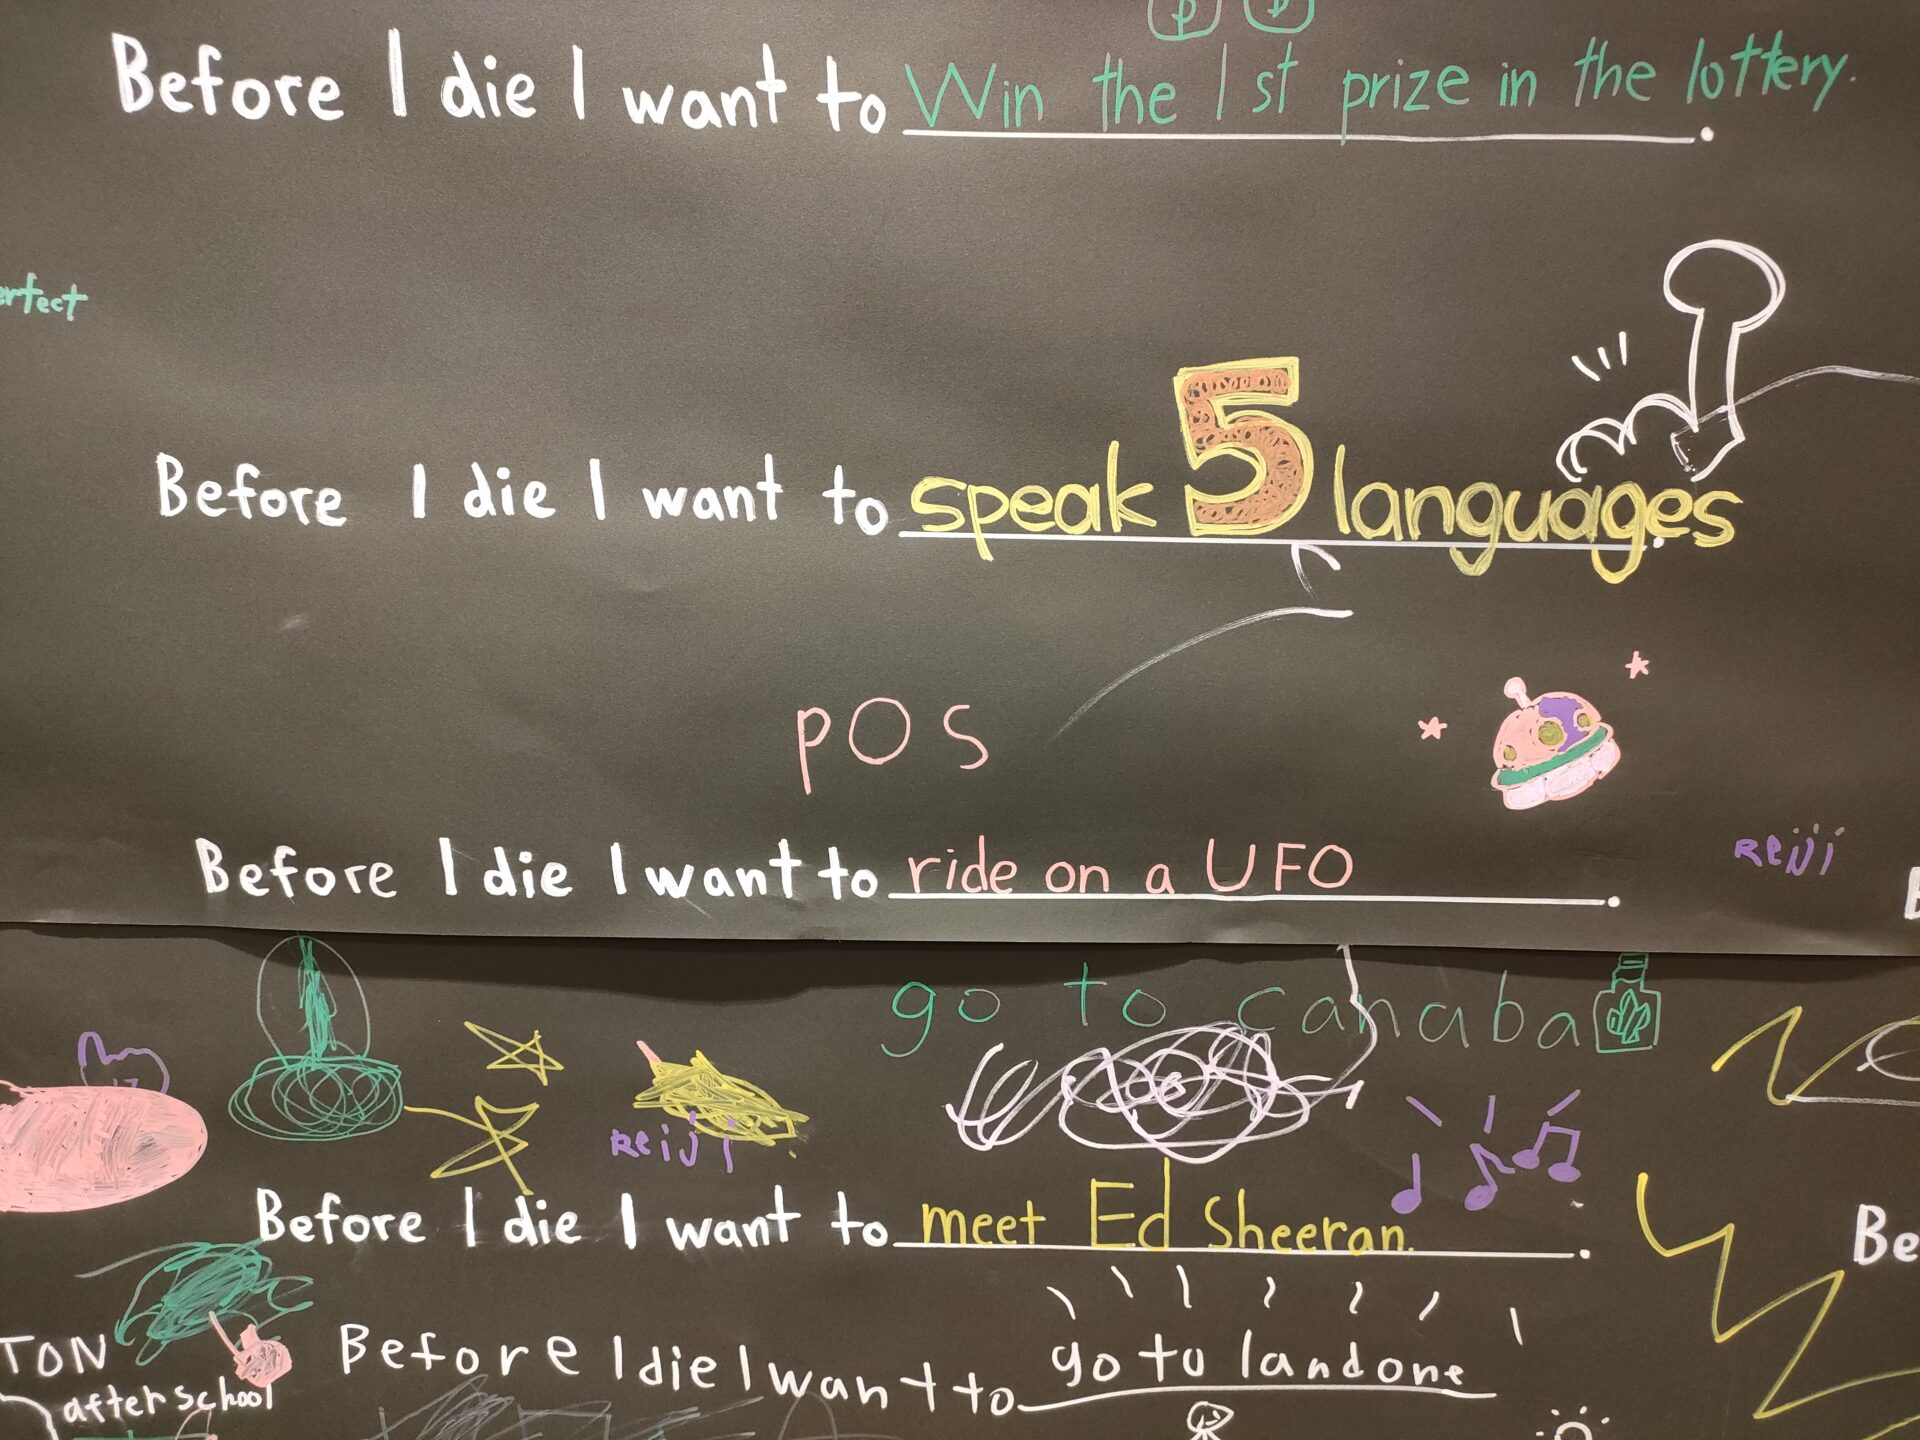 Before I die I want to Win the 1st prize in the lottery.
erfect
Before I die I want to speak 5 languages.
POS
Before I die I want to ride on a UFO.
Reiji
go to canaba
Reiji
Before I die I want to meet Ed Sheeran.
Be
TON
after school
Before I die I want to go to landone